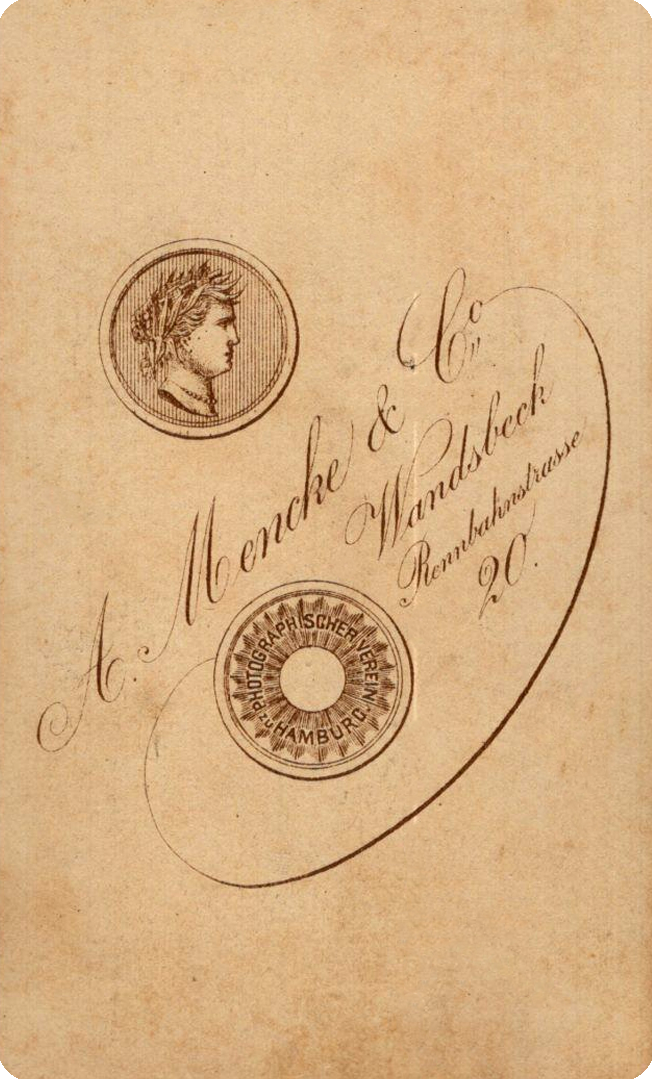 A. Mencke & Co
Wandsbeck
Rennbahnstrasse
20.
PHOTOGRAPHISCHER VEREIN
zu HAMBURG.